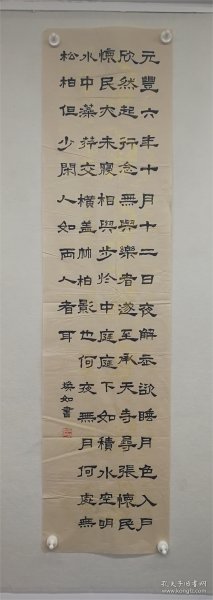 元豐六年十月十二日夜解衣欲睡月色入戶
欣然起行念無與樂者遂至承天寺尋張懷民
懷民亦未寢相與步於中庭庭下如積水空明
水中藻荇交橫蓋竹柏影也何夜無月何處無
松柏但少閑人如兩人者耳
如書
孔夫子旧书网